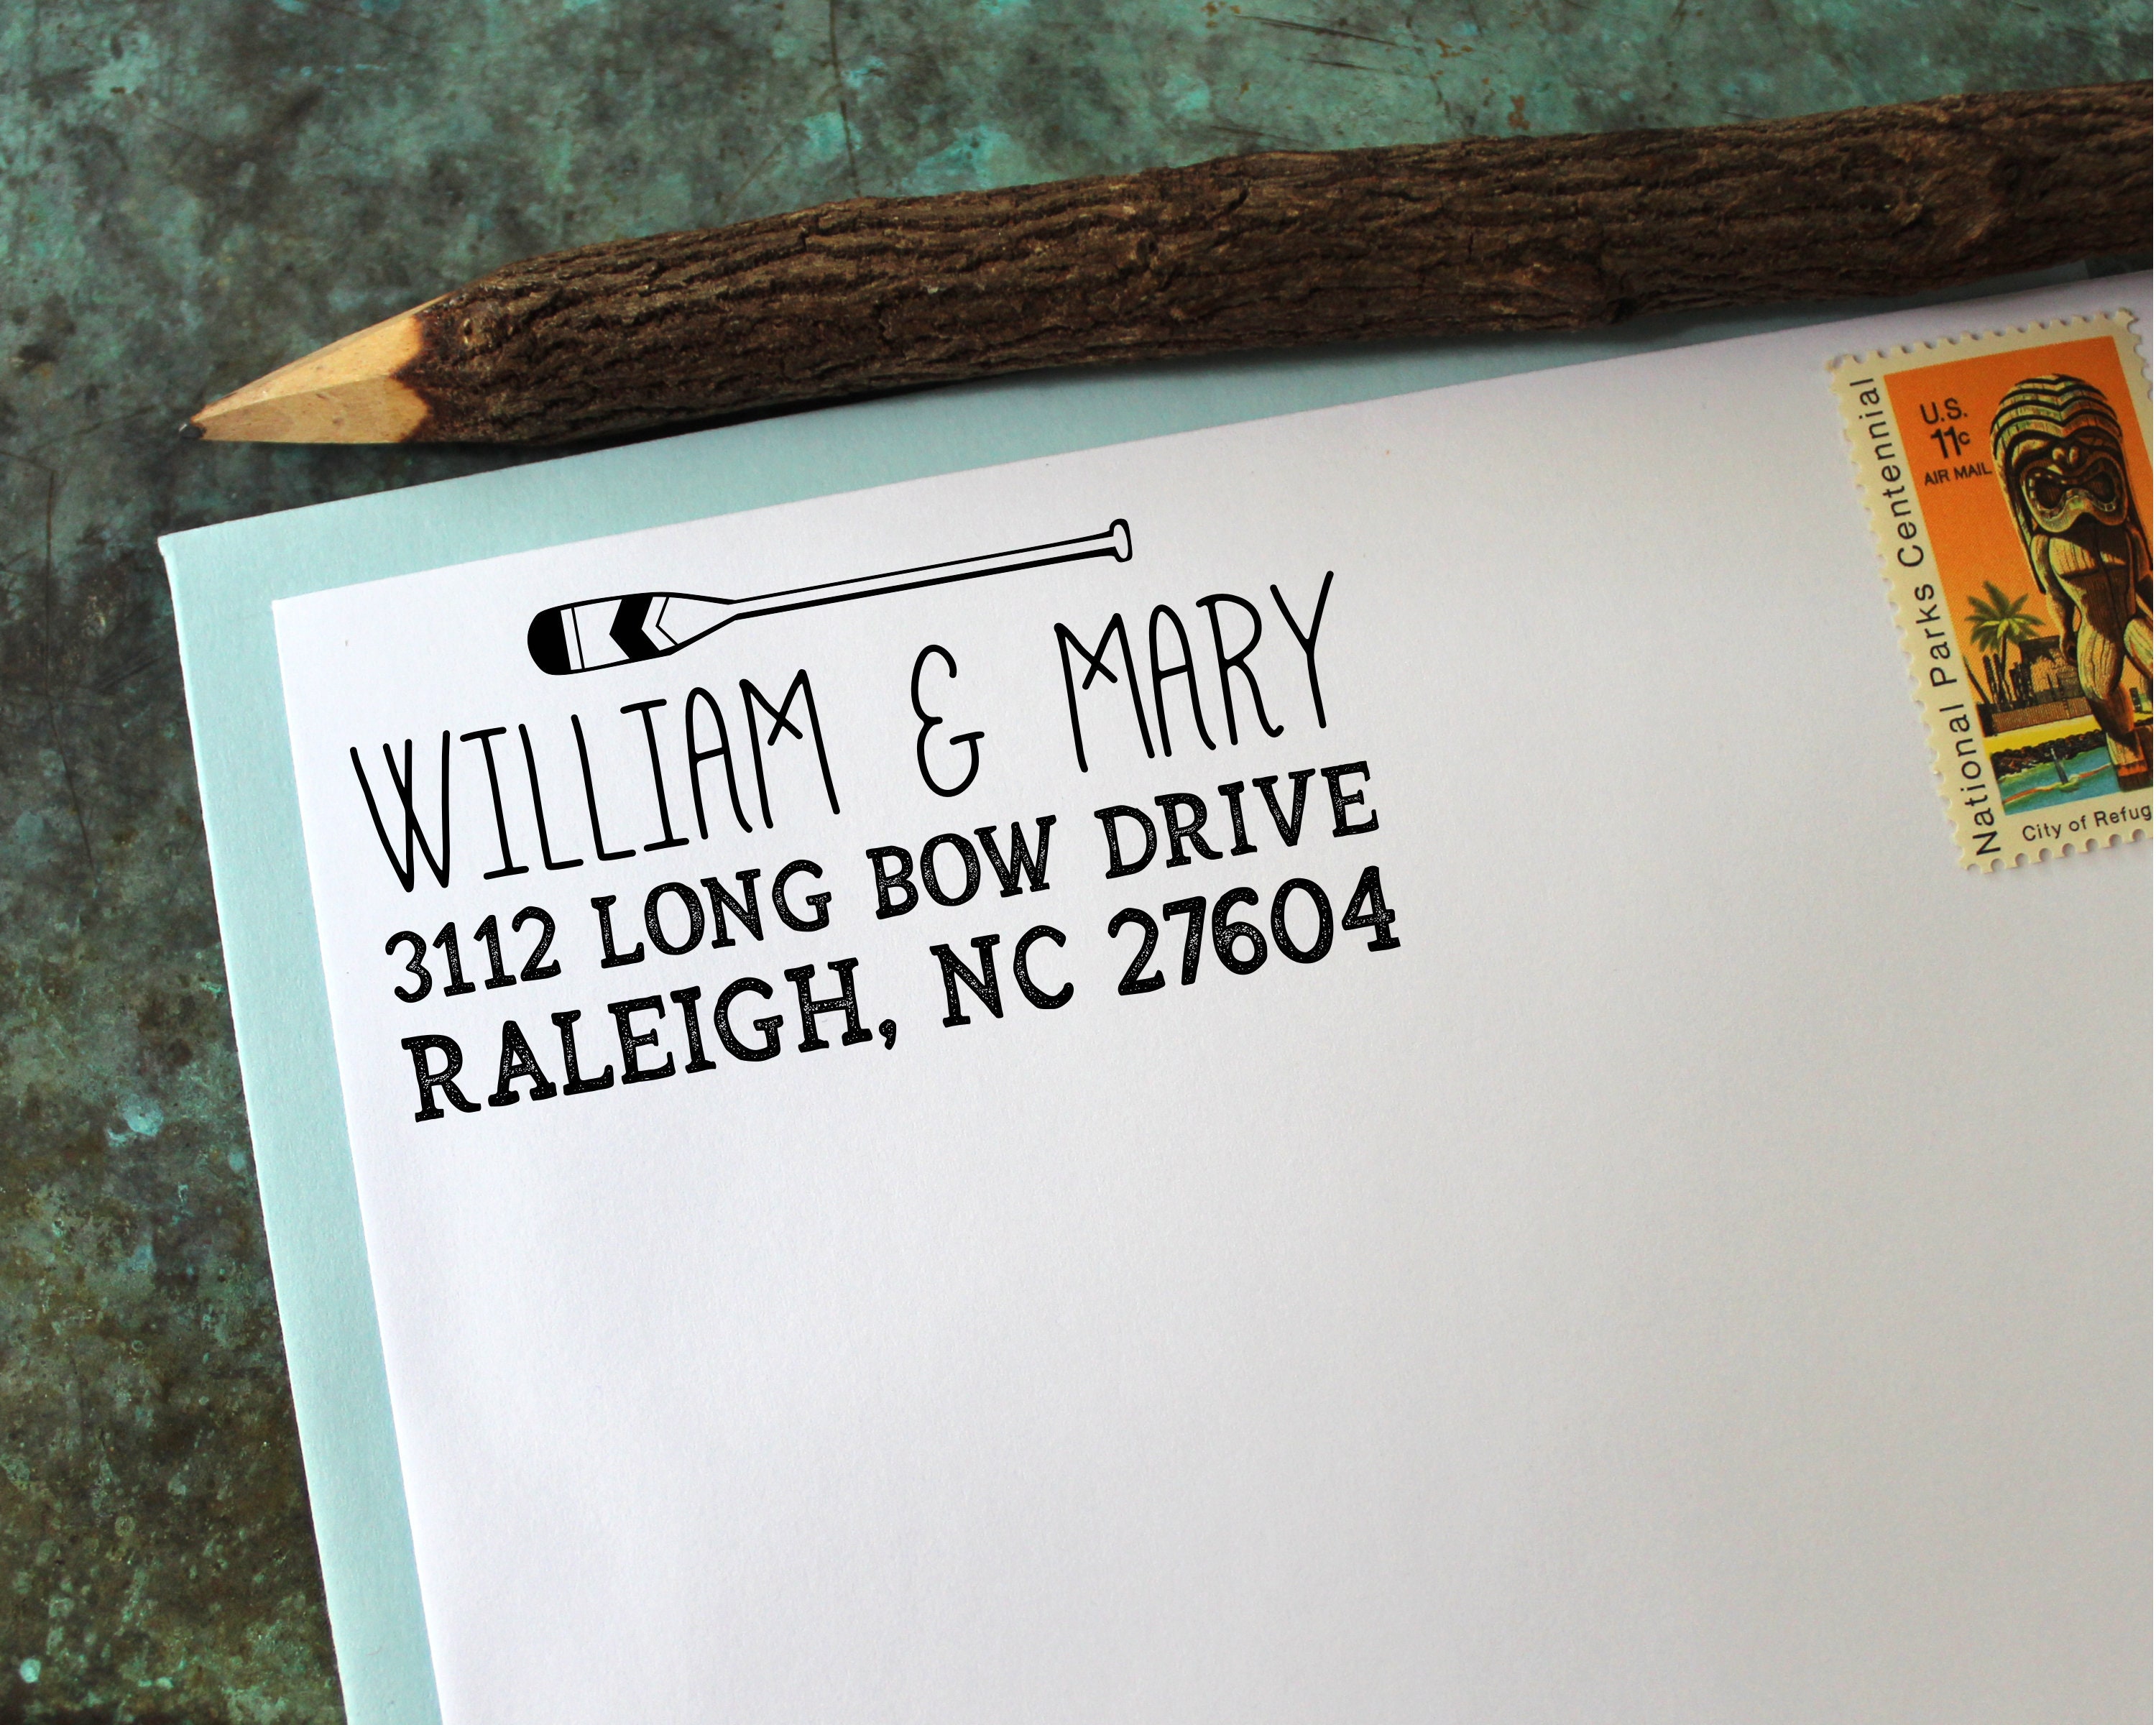 WILLIAM & MARY
3112 LONG BOW DRIVE
RALEIGH, NC 27604
U.S.
11c
AIR MAIL
National Parks Centennial
City of Refug